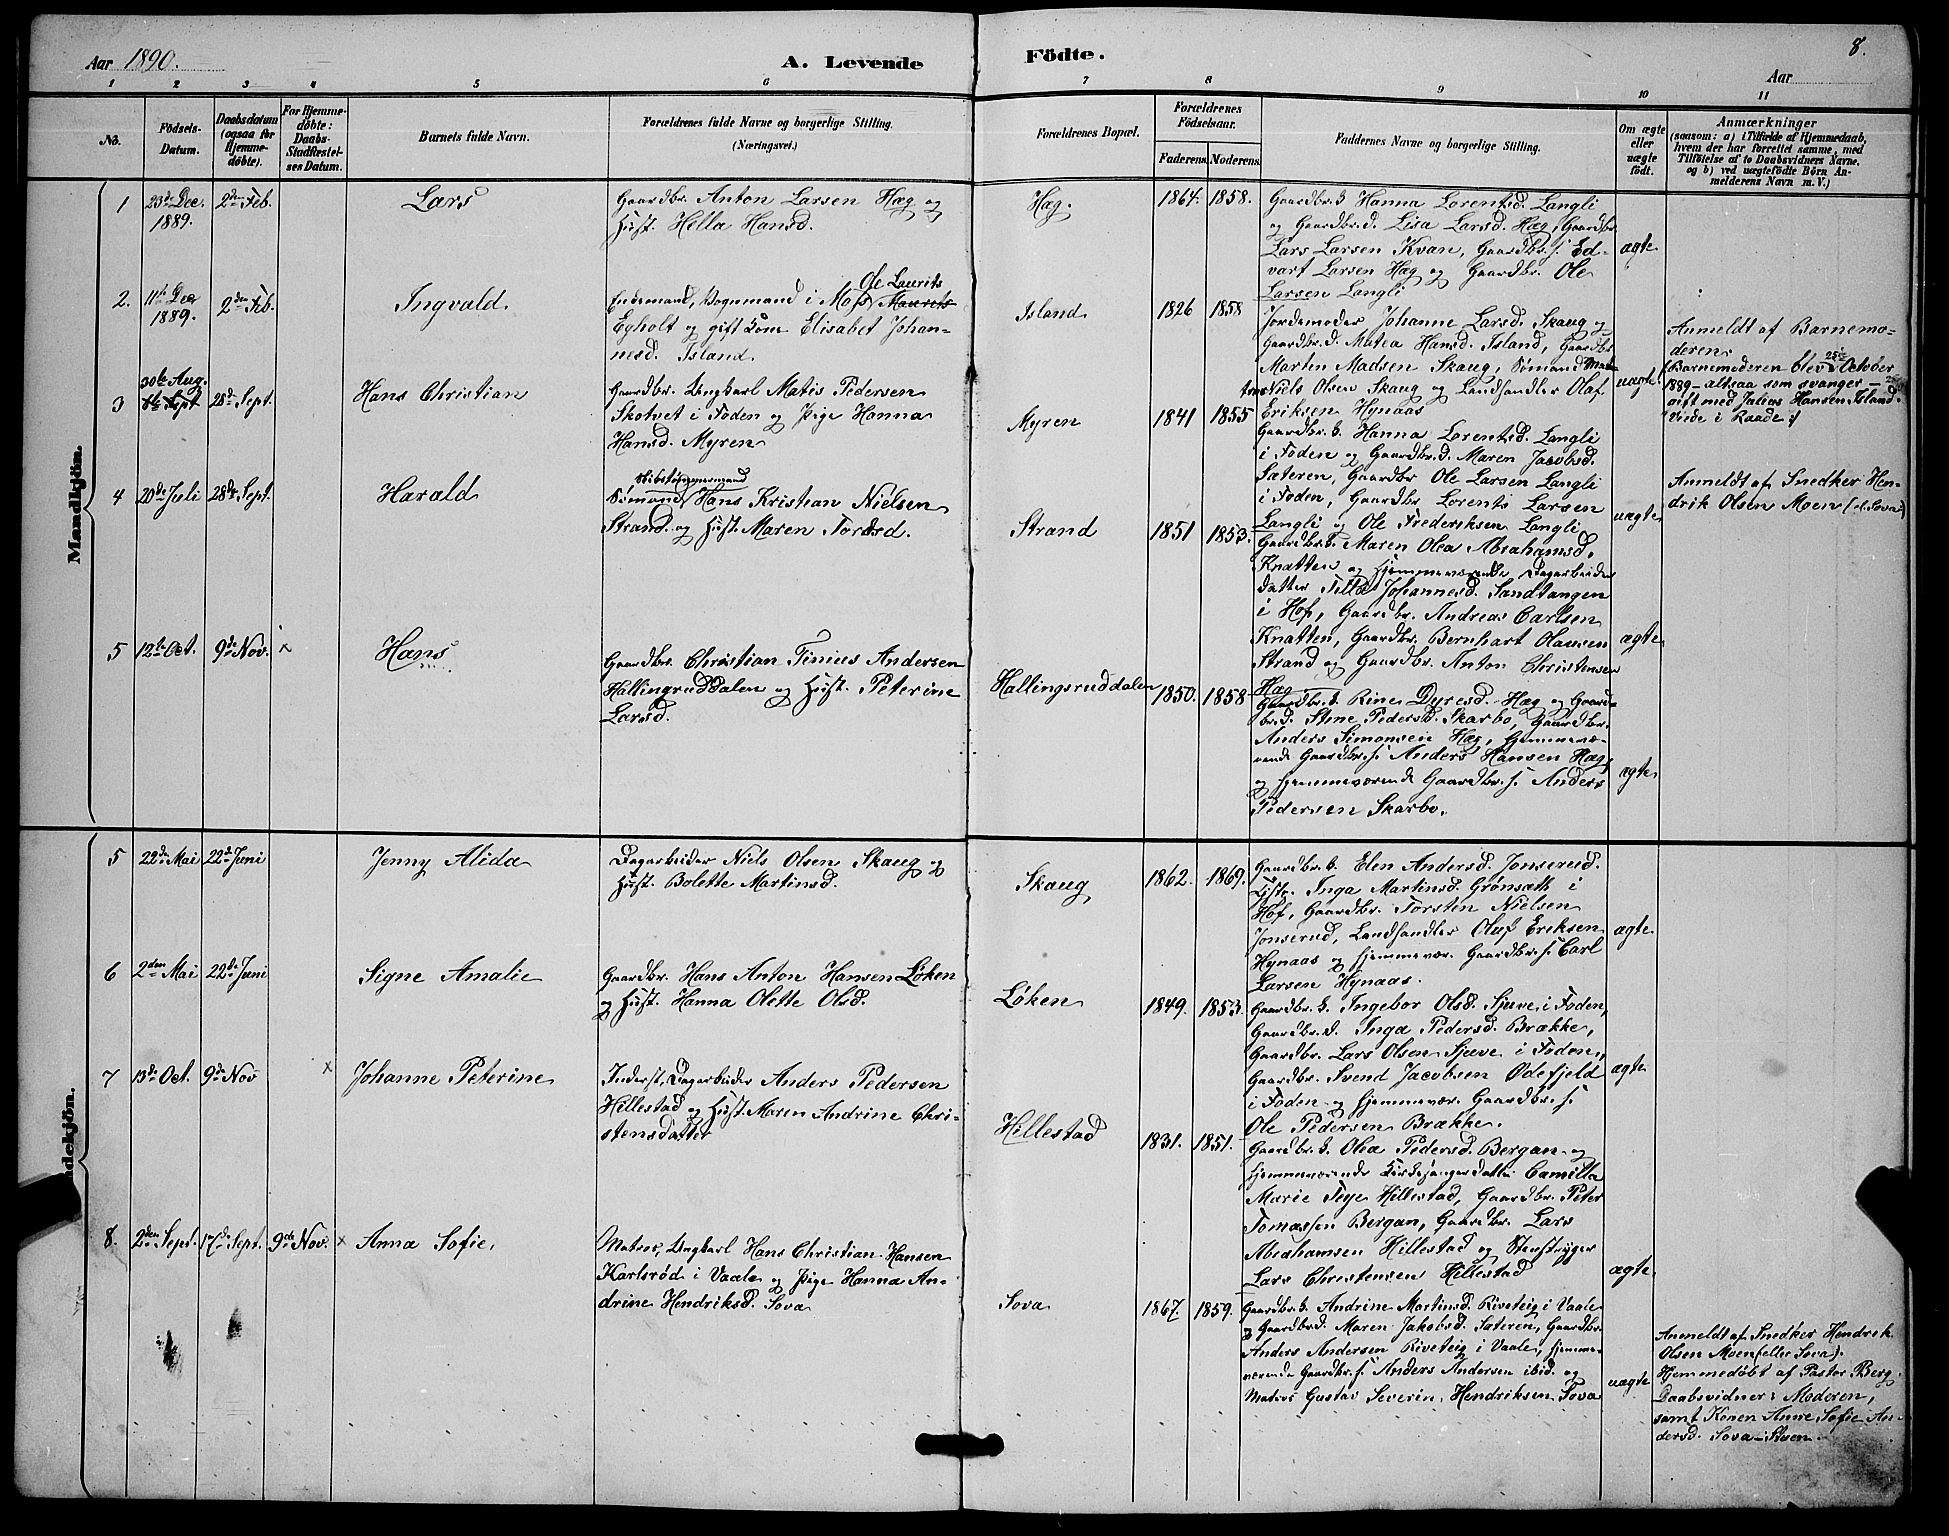 Aar 1890.
A. Levende
Födte.
8.
Aar
1 2 3 4 5 6 7 8 9 10 11
No.
Födsels-
Datum.
Daabsdatum
(ogsaa for
Hjemme-
døbte).
For Hjemme-
döbte:
Daabs-
Stadfæstel-
ses Datum.
Barnets fulde Navn.
Forældrenes fulde Navne og borgerlige Stilling.
(Næringsvei.)
Forældrenes Bopæl.
Forældrenes
Födselsaar.
Faderens. Moderens.
Faddernes Navne og borgerlige Stilling.
Om ægte
eller
uægte
födt.
Anmærkninger
(saasom: a) i Tilfælde af Hjemmedaab,
hvem der har forrettet samme, med
Tilföielse af to Daabsvidners Navne,
og b) ved uægtefödte Börn An-
melderens Navn m. V.)
Mandkjön.
1
23de Dec.
1889.
2den Feb.
Lars
Gaardbr. Anton Larsen Hæg og
Hust. Hella Hansd.
Hæg.
1864. 1858.
Gaardbr.k. Hanna Lorentsd. Langli
og Gaardbr.d. Lisa Larsd. Hæg, Gaardbr.
Lars Larsen Kvan, Gaardbr.s. Ed-
vart Larsen Hæg og Gaardbr. Ole
Larsen Langli
ægte
2.
11te Dec
1889.
2den Feb.
Ingvald
Ole Laurits
Enkemand, Vognmand i Moss Maurits
Egholt og gift Kone Elisabet Johan-
nesd. Island.
Island
1826 1858
Jordemoder Johanne Larsd. Skaug og
Gaardbr.d. Matea Hansd. Island, Gaardbr
Martin Madsen Skaug, Sømand
Niels Olsen Skaug og Landhandler Olaf
Eriksen Hynaas
uægte
Anmeldt af Barnemo-
deren.
(Barnemoderen blev 25de October
1889 - altsaa som svanger -
gift med Julius Hansen Island.
Viede i Raade.)
3
30te Aug.
28de Sept.
Hans Christian
Gaardbr. Ungkarl Matis Pedersen
Skotvet i Foden og Pige Hanna
Hansd. Myren
Myren
1841 1855
Gaardbr.k. Hanna Lorentsd. Langli
i Foden og Gaardbr.d. Maren Jacobsd.
Sæteren, Gaardbr Ole Larsen Langli
i Foden, Gaardbr Lorents Larsen
Langli og Ole Frederiksen Langli
uægte
Anmeldt af Snedker Hen-
drik Olsen Moen (el. Sova)
4
20de Juli
28de Sept.
Harald
Skibstømmermand
Sømand Hans Kristian Nielsen
Strand og Hust. Maren Nordsd.
Strand
1851 1853.
Gaardbr.k. Maren Olea Abrahamsd.
Knatten og Hjemmeværende Dagarbeider
datter Tilla Johannesd. Sandtangen
i Hof, Gaardbr. Andreas Carlsen
Knatten, Gaardbr. Bernhart Olausen
Strand og Gaardbr. Anton Christensen
Hæg
ægte
5
12te Oct.
9de Nov.
x
Hans
Gaardbr. Christian Tinius Andersen
Hallingruddalen og Hust. Peterine
Larsd.
Hallingsruddalen
1850. 1858
Gaardbr.k. Rine Dyresd. Hæg og Gaard-
br.d. Stine Pedersd. Skarbo, Gaardbr.
Anders Simonsen Hæg, Hjemmevæ-
rende Gaardbr.s. Anders Hansen Hæg,
og Hjemmeværende Gaardbr.s. Anders
Pedersen Skarbo.
ægte
5
22de Mai
22de Juni
Jenny Alida
Dagarbeider Niels Olsen Skaug og
Hust. Bolette Martinsd.
Skaug
1862. 1869.
Gaardbr.k. Elen Andersd. Jonserud.
Inga Martinsd. Grønsæth i
Hof, Gaardbr. Torsten Nielsen
Jonserud, Landhandler Oluf Eriksen
Hynaas og Hjemmevær. Gaardbr.s. Carl
Larsen Hynaas.
ægte
6
2den Mai
22de Juni
Signe Amalie
Gaardbr. Hans Anton Hansen Løken
og Hust. Hanna Olette Olsd.
Løken
1849. 1853.
Gaardbr.k. Ingebor Olsd. Sjuve i Foden,
Gaardbr.d. Inga Pedersd. Brække,
Gaardbr. Lars Olsen Sjuve i Foden,
Gaardbr. Svend Jacobsen Odefjeld
i Foden og Hjemmevær. Gaardbr.s.
Ole Pedersen Brække.
ægte
7
13de Oct.
9de Nov
x
Johanne Peterine
Inderst, Dagarbeider Anders Pedersen
Hillestad og Hust. Maren Andrine Chri-
stensdatter
Hillestad
1831. 1851.
Gaardbr.k. Olea Pedersd. Bergan og
Hjemmeværende Kirkesangerdatter Camilla
Marie Teye Hillestad, Gaardbr. Peter
Tomassen Bergan, Gaardbr. Lars
Abrahamsen Hillestad og Stenhugger
Lars Christensen Hillestad
ægte
8.
2den Sept.
17de Sept.
9de Nov.
x
Anna Sofie,
Matros, Ungkarl Hans Christian Hansen
Karlsrød i Vaale og Pige Hanna An-
drine Hendriksd. Sova
Sova
1867. 1859.
Gaardbr.k. Andrine Martinsd. Riveteig i Vaale
og Gaardbr.d. Maren Jakobsd. Sæteren, Gaardbr.
Anders Andersen Riveteig i Vaale, Hjemme-
værende Gaardbr.s. Anders Andersen ibid. og
Matros Gustav Severin Hendriksen Sova
uægte
Anmeldt af Snedker Hendrik
Olsen Moen (eller Sova).
Hjemmedøbt af Pastor Berg
Daabsvidner: Moderen,
samt Konen Anne Sofie An-
dersd. Sova